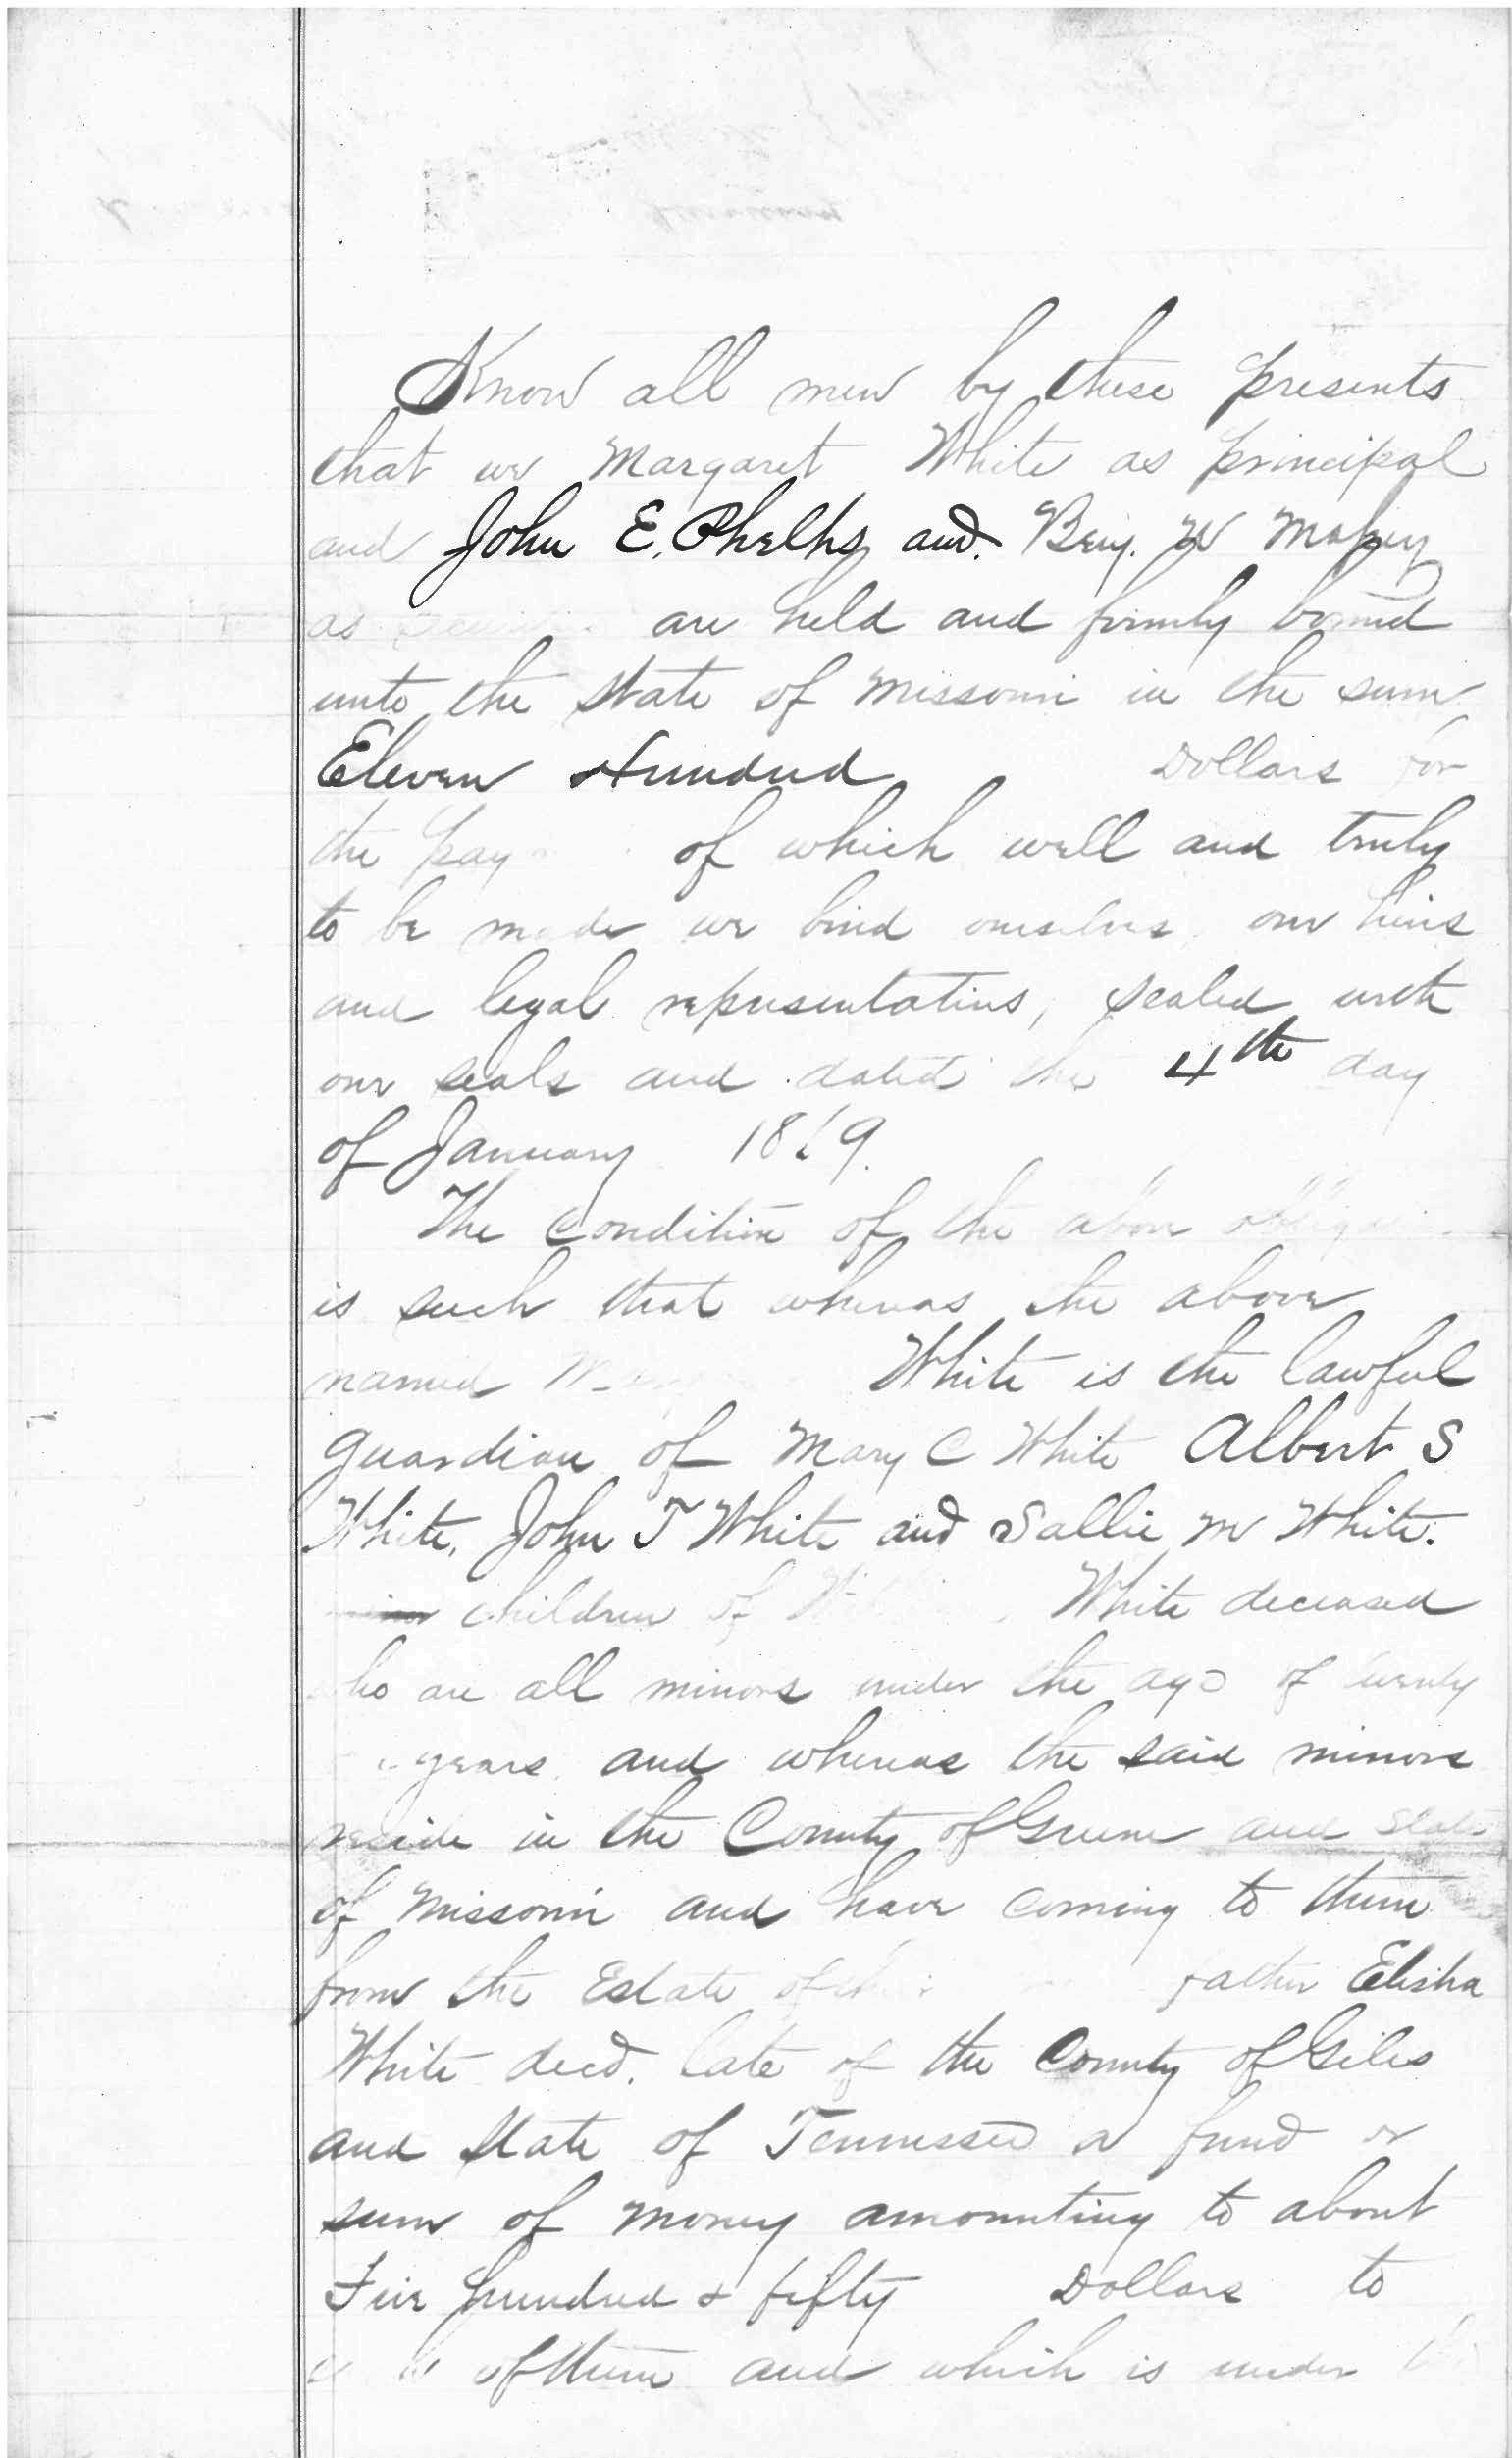 Know all men by these presents
that we Margaret White as principal
and John E. Phelps and. Benj. W Mapey
as are held and firmly bound
unto the State of Missouri in the sum
Eleven Hundred Dollars for
the pay of which well and truly
to be made we bind ourselves our heirs
and legal representatives, sealed with
our seals and dated the 4th day
of January 1869.
The Condition of the above
is such that whereas the above
named White is the lawful
guardian of Mary C White Albert S
White, John T White and Sallie M White.
children of White deceased
who are all minors under the age of twenty
years and whereas the said minors
reside in the County of Greene and State
of Missouri and have coming to them
from the Estate of father Elisha
White decd. late of the County of Giles
and State of Tennessee a fund or
sum of money amounting to about
Five hundred & fifty Dollars to
of them and which is under